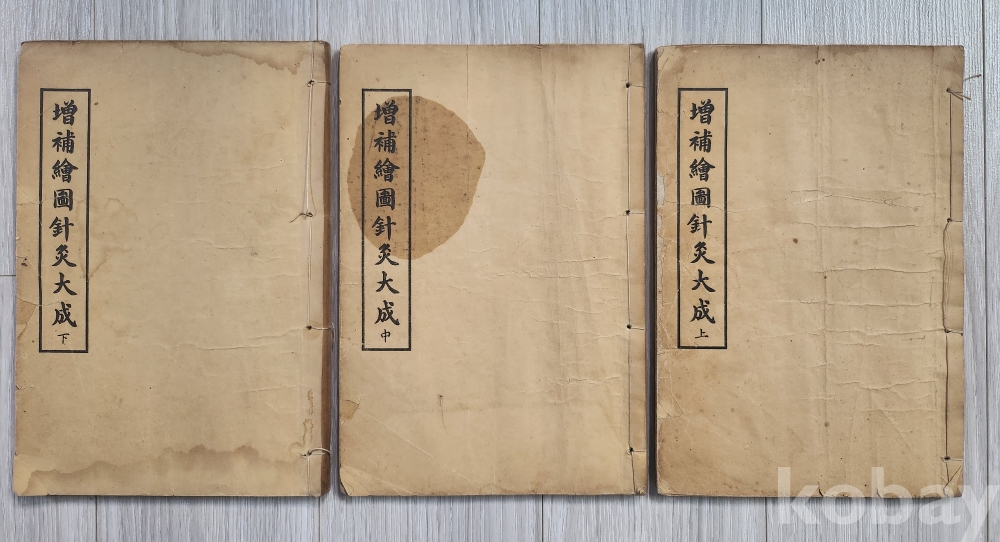 增補繪圖針灸大成 下
增補繪圖針灸大成 中
增補繪圖針灸大成 上
kobay